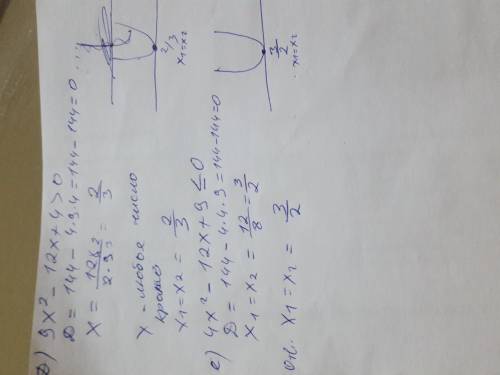 д) 9x² - 12x + 4 > 0
D = 144 - 4·9·4 = 144 - 144 = 0 ...
x = 12/2·9 = 2/3
x - любое число
кроме
x₁ = x₂ = 2/3
2/3
x₁ = x₂
е) 4x² - 12x + 9 ≤ 0
D = 144 - 4·4·9 = 144 - 144 = 0
x₁ = x₂ = 12/8 = 3/2
x₁ = x₂ = 3/2
3/2
x₁ = x₂